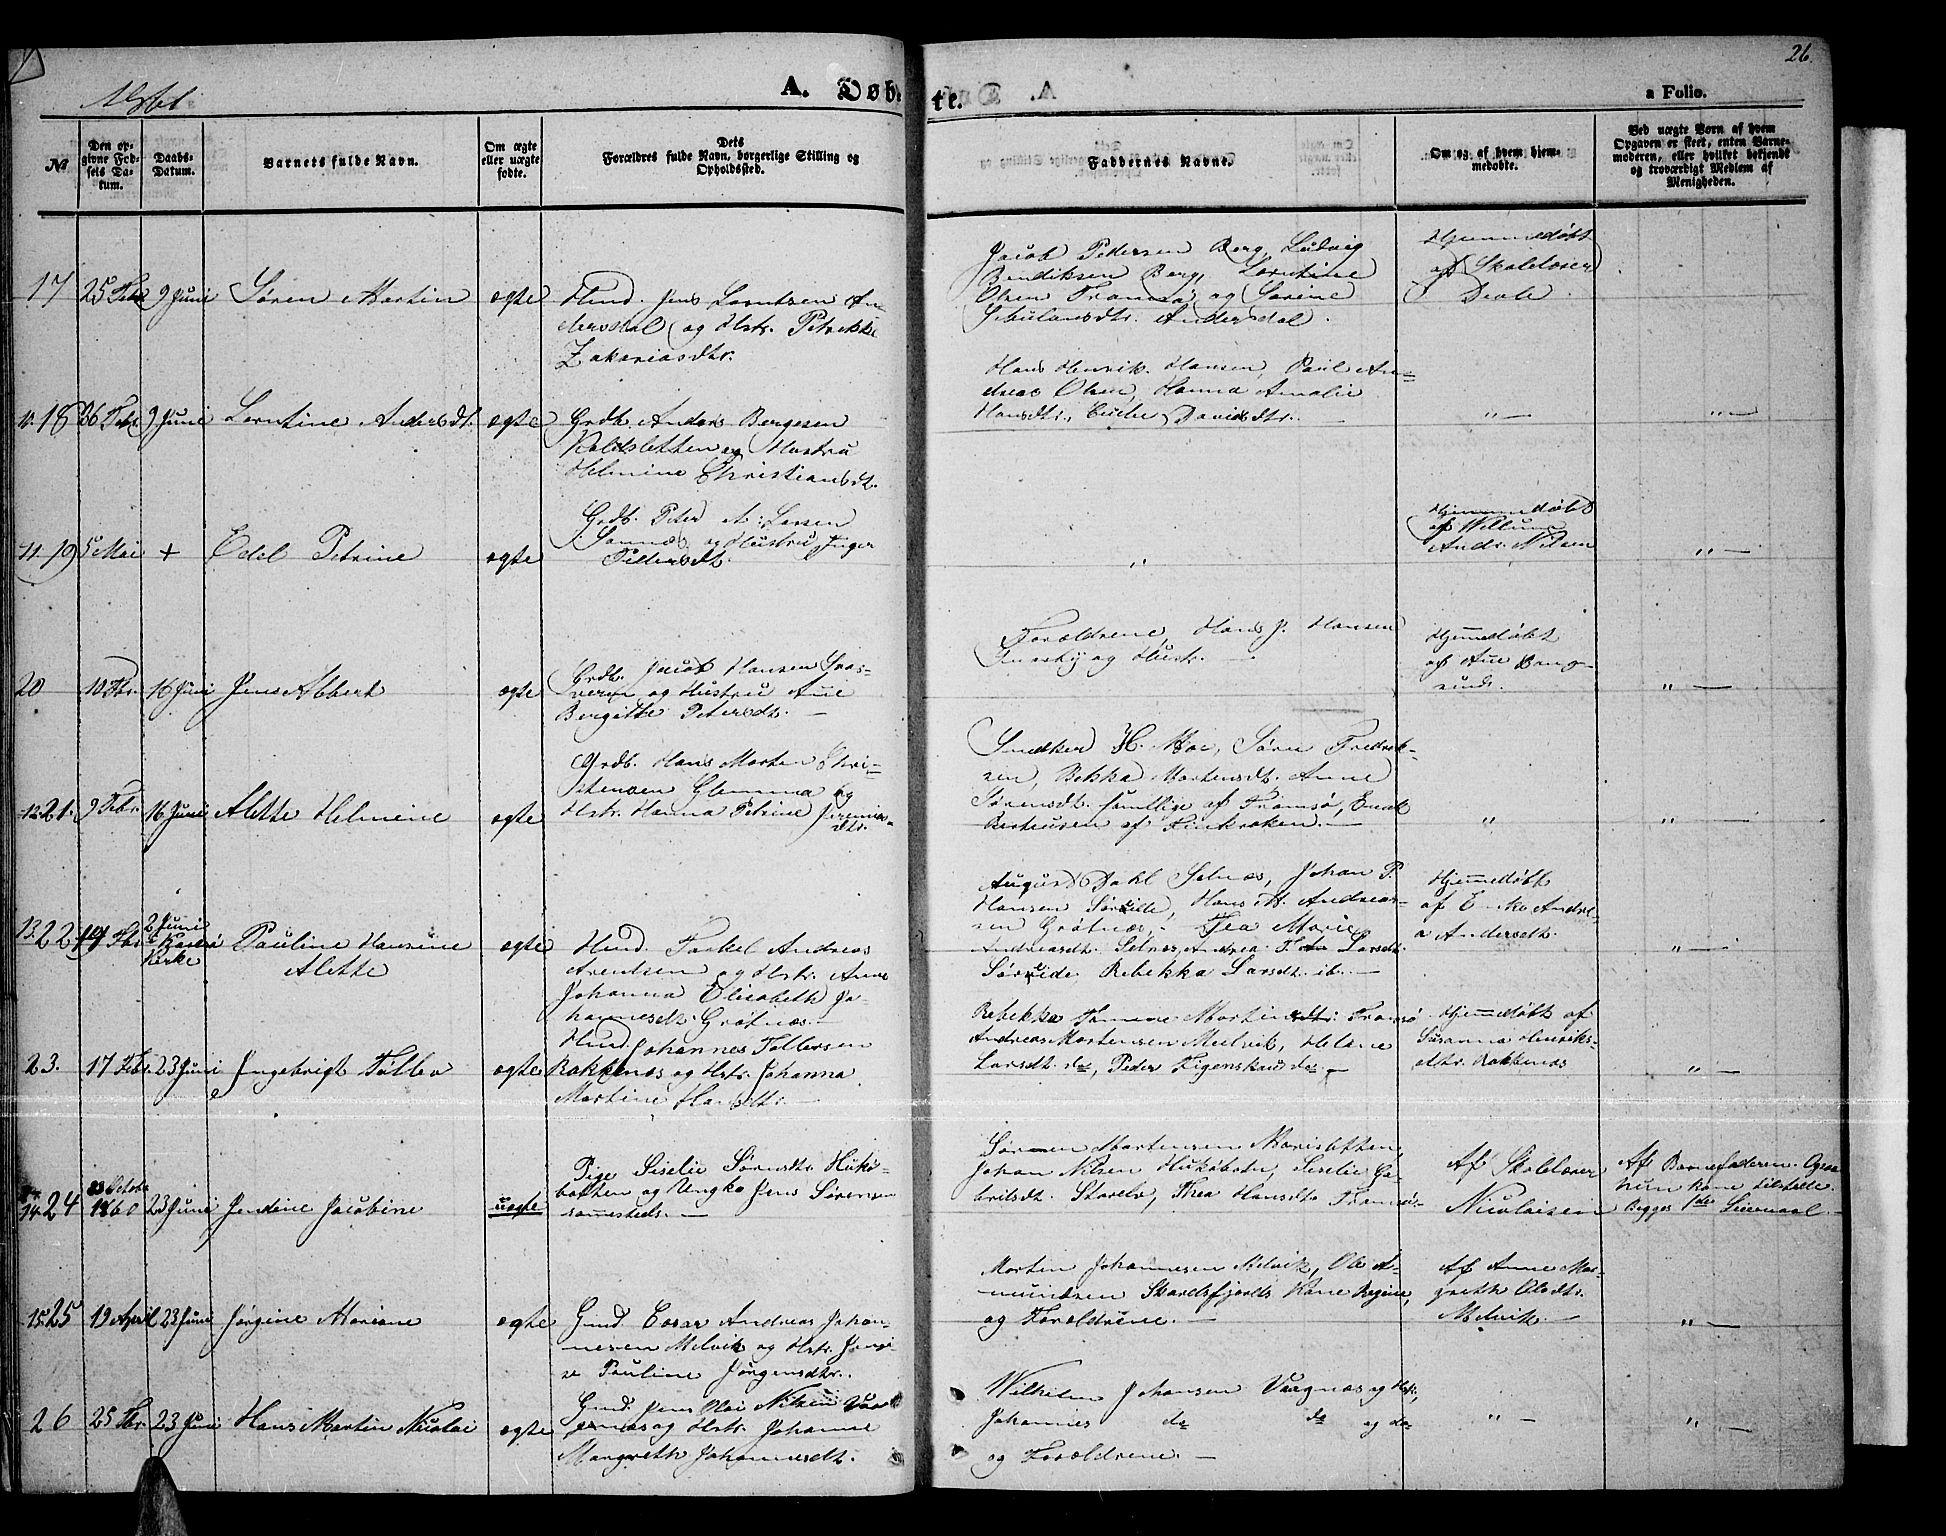 26.
1861
A. Døb-
te.
a Folio.
№
Den op-
givne Fød-
sels Da-
tum.
Daabs-
Datum.
Barnets fulde Navn.
Om ægte
eller uægte
fødte.
Dets
Forældres fulde Navn, borgerlige Stilling og
Opholdssted.
Faddernes Navne.
Om og af hvem hjem-
medøbte.
Ved uægte Børn af hvem
Opgaven er skeet, enten Barne-
moderen, eller hvilket bekjendt
og troværdigt Medlem af
Menigheden.
17
25 Febr
9 Juni
Søren Martin
ægte
Huusd. Jens Lorntsen An-
dersdal og Hstr. Petrikke
Zakariasdtr.
Jacob Pedersen Berg, Ludvig
Bendiksen Berg, Lorntine
Olsen Tromsø og Sorine
Andersdal.
Hjemmedøbt
af Skolelærer
10. 18
26 Febr
9 Juni
Lorntine Andersdt.
ægte
Grdb. Anders Bergesen
Kaldsletten og Hustru
Helmine Christiansdt.
Hans Henrik Hansen, Paul An-
dreas Olsen, Hanna Amalie
Hansdtr., Davidsdtr.
" —
" —
11. 19
5 Mai
+
Edel Petrine
ægte
Grdb. Peter A. Larsen
og Hustru Inger
Pedersdt.
"
Hjemmedøbt
af Willum
Andr. Nilsen
" —
20
10 Fbr.
16 Juni
Jens Albert
ægte
Grdb. Jacob Hansen
og Hustru Ane
Bergitte Petersdt. —
Forældrene, Hans J. Hansen
og Hustr. —
Hjemmedøbt
af Ane
" —
12. 21.
9 Febr.
16 Juni
Alette Helmine
ægte
Grdb. Hans Morten Chri-
stensen Glemma og
Hstr. Hanna Petrine Jeremias-
dtr.
Snedker H. Moe, Søren Fredrik-
sen, Bekka Mortensdt. Anne
Sørensdt. samtlige af Tromsø, Enok
af Finkroken. —
"
" —
13. 22
19 Fbr.
2 Juni
i Karlsø
Kirke
Pauline Hansine
Alette
ægte
Huusd. Torkel Andreas
Arentsen og Hstr. Anne
Johanna Elisabeth Jo-
hannesdt. Grøtnæs. —
August Dahl Selnæs, Johan P.
Hansen Søreide, Hans A. Andreas-
sen Grøtnæs, Thea Marie
Andreasdt. Selnæs, Andrea Larsdt.
Søreide, Rebekka Larsdt. ib. —
Hjemmedøbt
af Andre-
a Andersdt.
" —
23.
17 Febr.
23 Juni
Ingebrigt Tollev
ægte
Huusd. Johannes Tollefsen
Bakkenæs og Hstr. Johanna
Martine Hansdtr. —
Rebekka Mortensdtr. Tromsø
Andreas Mortensen Meelvik, Helene
Larsdt. do, Peder Figenskau do. —
Hjemmedøbt af
Susanna Henriks-
dtr. Bakkenæs
" —
14. 24
23 Octobr
1860
23 Juni
Jensine Jacobine
uægte
Pige Siselie Sørnsdtr. Hukø-
botten og Ungk. Jens Sørensen
sammesteds. —
Sørn Mortensen Marisletten,
Johan Nilsen Hukøbotn, Siselie Ga-
brilsdt. Storelv, Thea Hansdtr Tromsø.
Af Skolelærer
Nicolaisen
Af Barnefaderen. Ogsaa
hun kan tilstede.
Begges 1ste Leiermaal. —
15. 25
19 April
23 Juni
Jørgine Mariane
ægte
Huusd. Cosar Andreas Johan-
nesen Melvik og Hstr. Jensi-
ne Pauline Jørgensdtr.
Morten Johannesen Melvik, Ole A-
mundsen Skardsfjords Kone Regine,
og Forældrene. —
Af Anne Mar-
greth Olsdtr.
Melvik. —
" —
26
25 Fbr.
23 Juni
Hans Martin Nicolai
ægte
Huusd. Jens Olai Nilsen Vaa-
gnæs og Hstr. Johanne
Margreth Johannesdt.
Wilhelm Johansen Vaagnæs og Hstr,
Johannes do do og do
og Forældrene. —
" —
" —